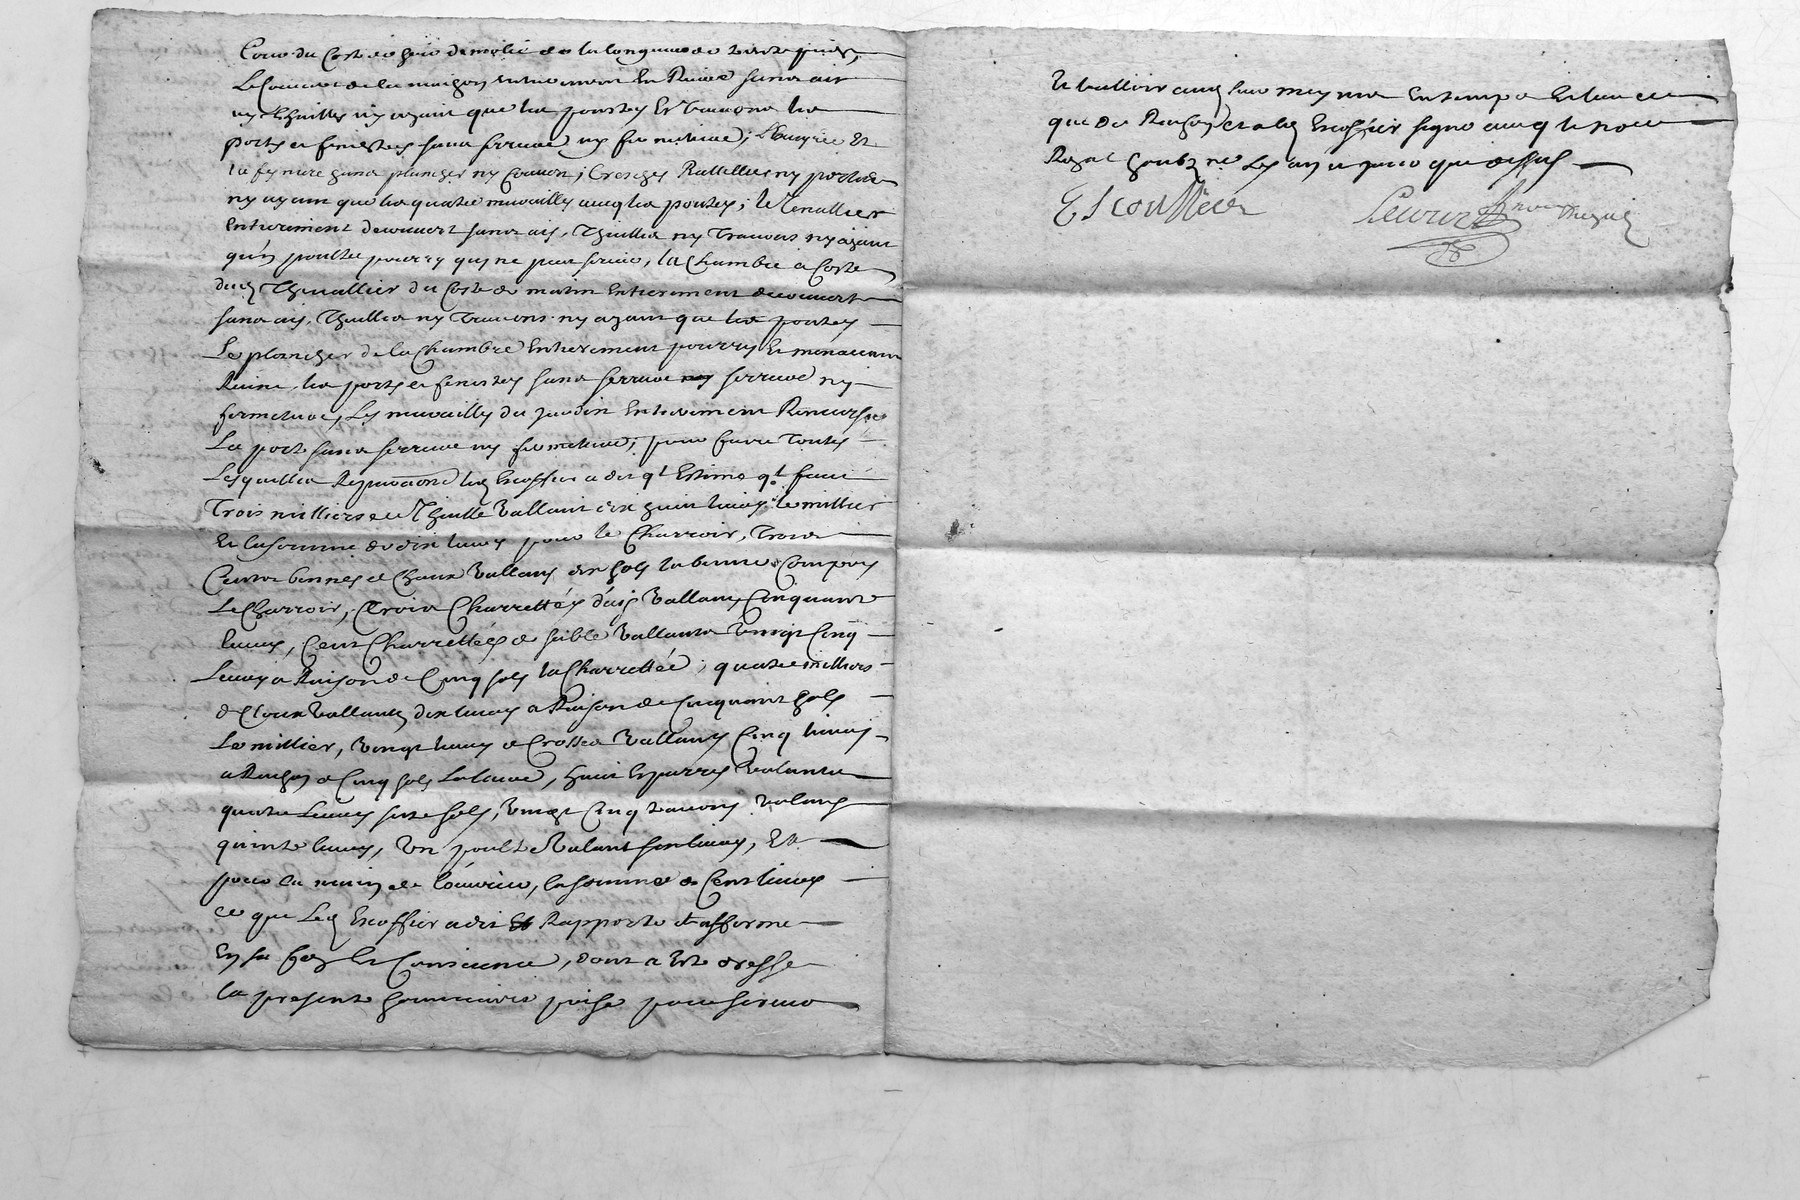 Cour du Costé de bize demolie de la longueur de trente pieds,
Le Couvert de la maizon entierement En Ruine sans ais
ny Thuilles ny ayant que les poustes Et travons les
portes et fenestres sans serrure ny fermeture; L'Escuyrie Et
la feniere sans plancher ny Couvert, Creches Ratelliers ny portes
ny ayant que les quatre murailles avecq les poutres; le Cenallier
Entierement decouvert sans ais, Thuilles ny Travons ny ayant
qu'un poultre pourry quy ne peut servir, la Chambre a Costé
dud Thenallier du Costé de matin Entierement decouvert
sans ais, Thuilles ny Travons ny ayant que les poutres
Le plancher de la Chambre Entierement pourry Et menacant
Ruine, les portes et fenestres sans serrure ny serrure ny
fermeture, Les murailles du Jardin Entierement Renversées
La porte sans serrure ny fermeture; pour faire Toutes
Lesquelles Reparations led Escoffier a dit et Estimé qt faut
Trois milliers de Thuille Vallant dix huit livres le millier
Et la somme de dix livres pour le Charroir, Trois
Centz bennes de Chaux Vallans dix solz la benne Compris
Le Charroir, Trois Charrettées d'ais Vallans Cinquante
livres, Cent Charrettées de sable Vallants Vingt Cinq
Livres a Raison de Cinq solz la Charrettée; quatre milliers
de Cloux Vallants dix livres a Raison de Cinquante solz
Le millier, Vingt livres de Crosses Vallans Cinq livres
a Raison de Cinq solz La livre, huit Esparres Valants
quatre Livres seize solz, Vingt Cinq travons valans
quinze livres, Un poultre Valant six livres, Et
pour la main de l'ouvrier, la somme de Cent livres
ce que Led Escoffier a dit Et Rapporté Et affirmé
En sa foy Et Conscience, dont a Esté dressé
la presente sommaire prise pour servir
Et valloir aud sieur meynier En temps Et lieu ce
que de Raison et a led Escoffier signé avecq le no.re
Royal soubz.né Les an et jour que dessus
Escouffier